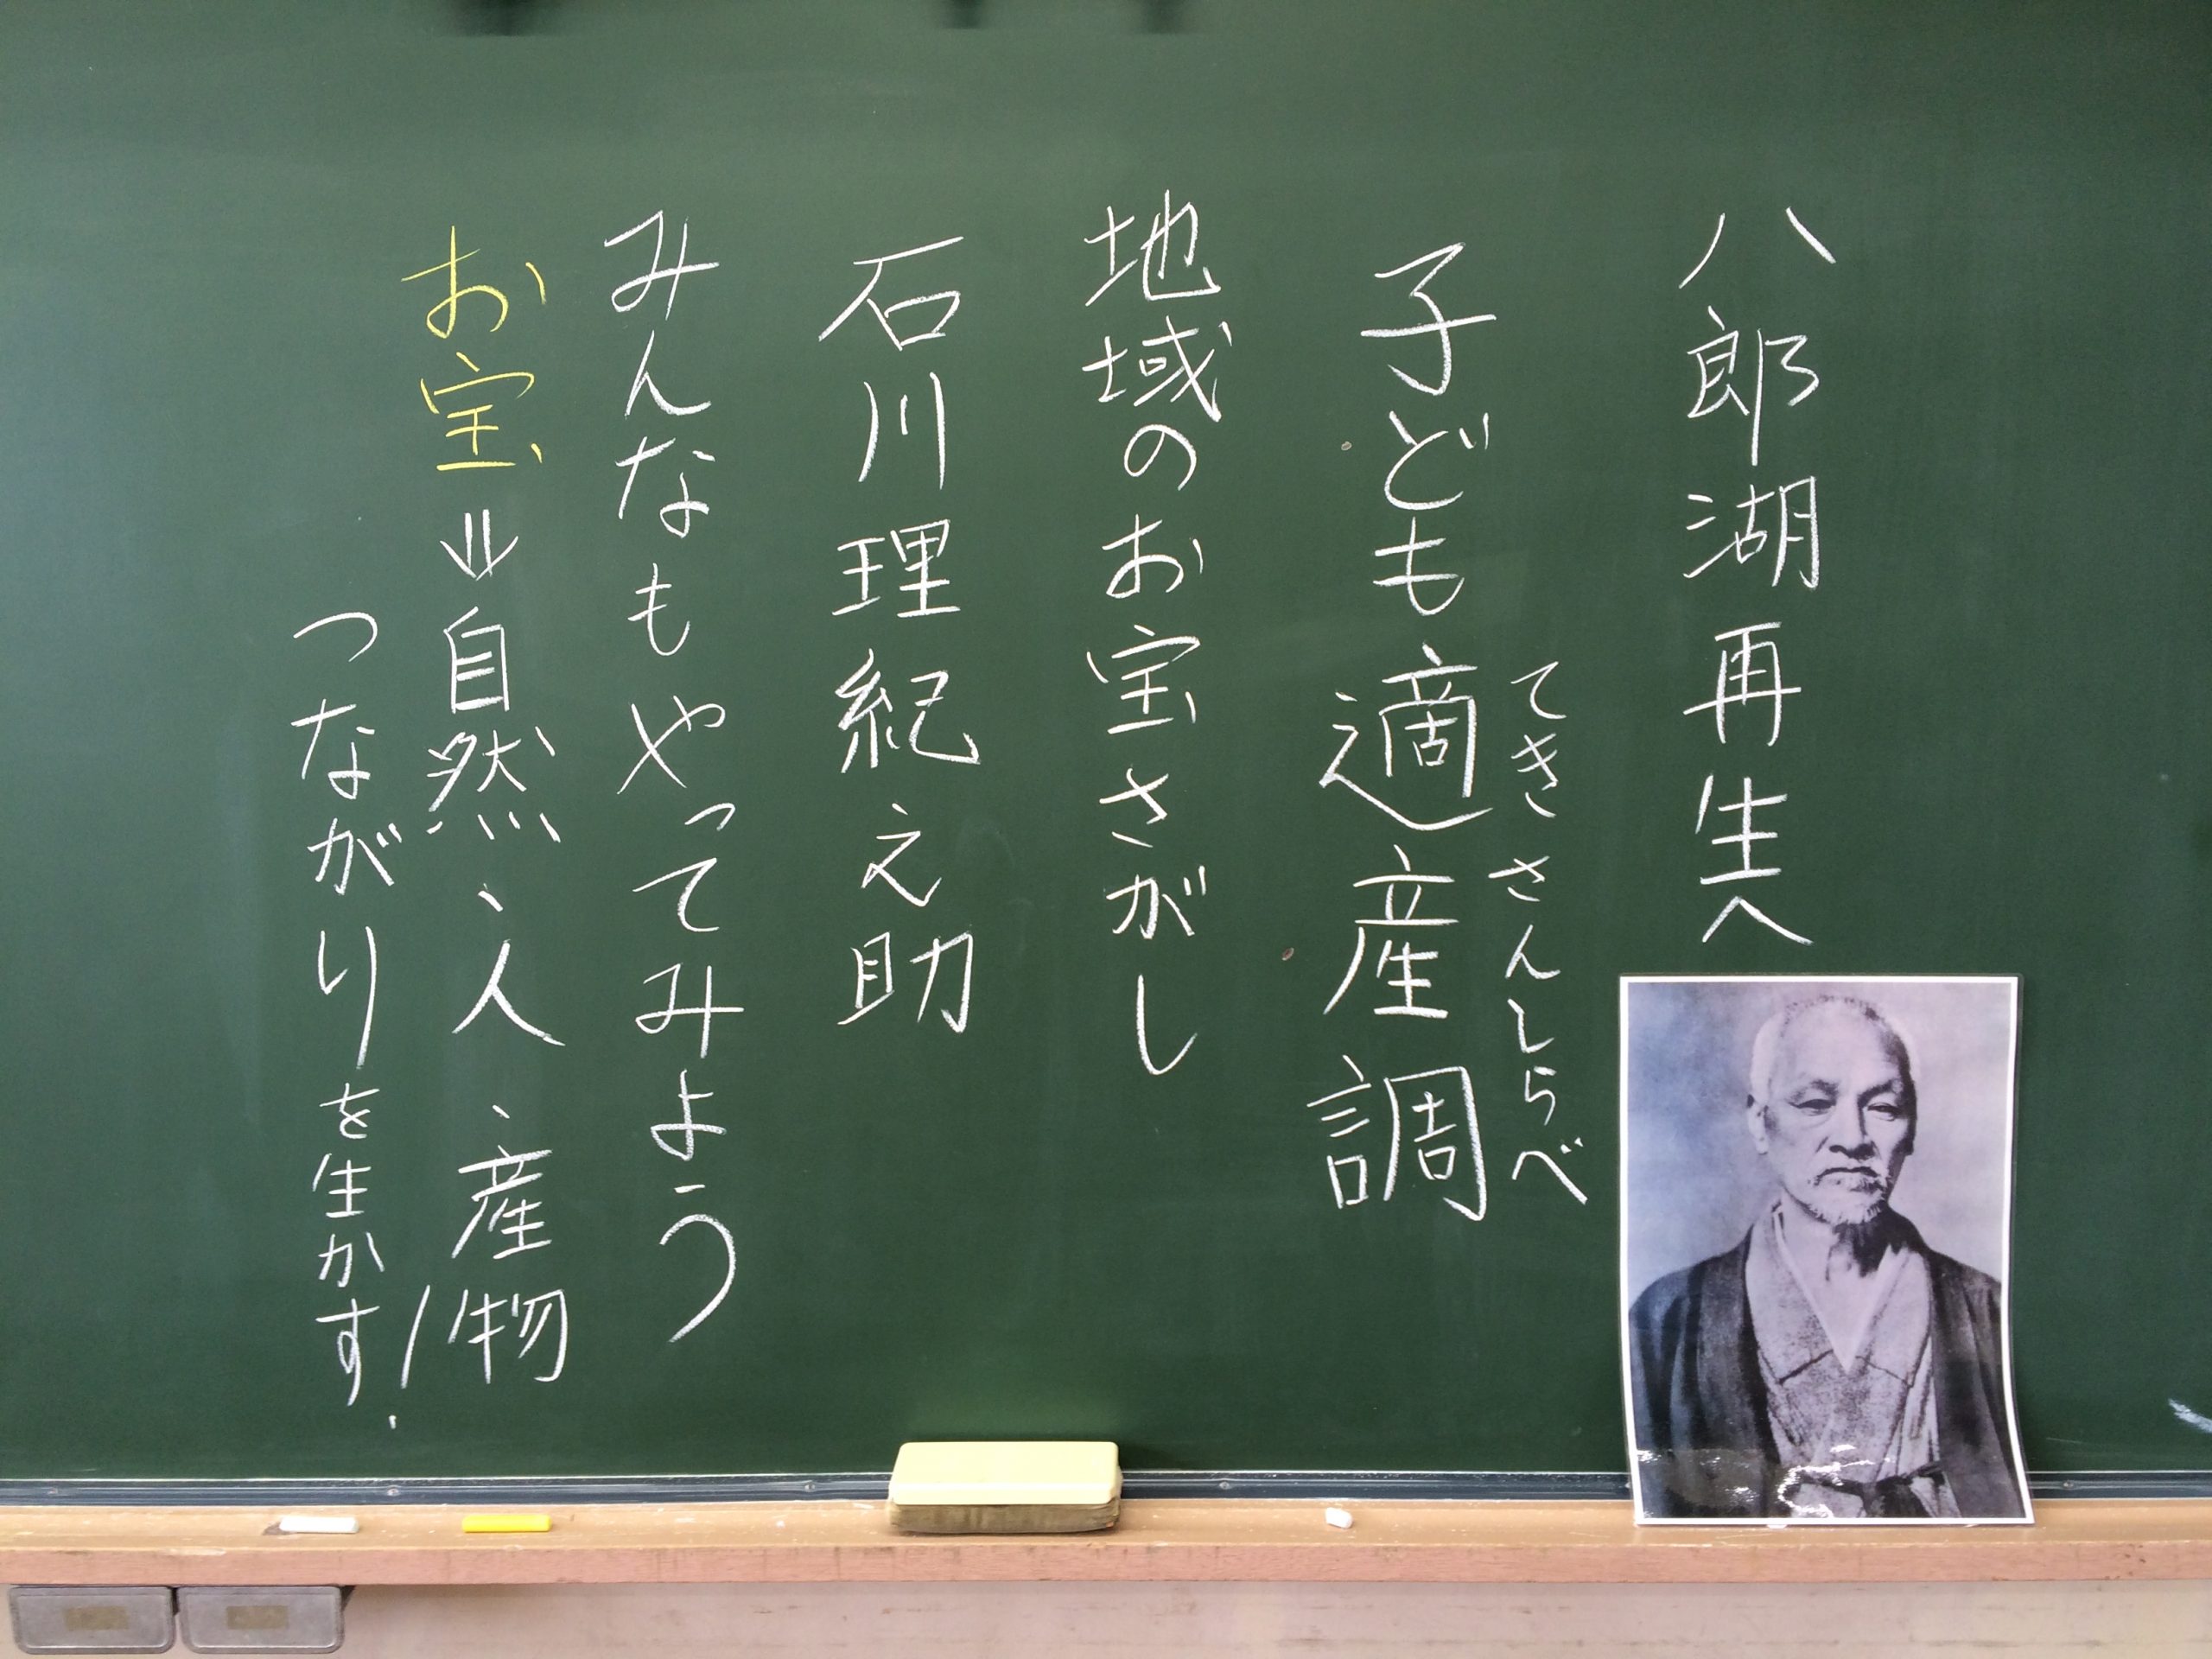 八郎湖再生へ
てきさんしらべ
子ども適産調
地域のお宝さがし
石川理紀之助
みんなもやってみよう
お宝⇒自然、人、産物
つながりを生かす!